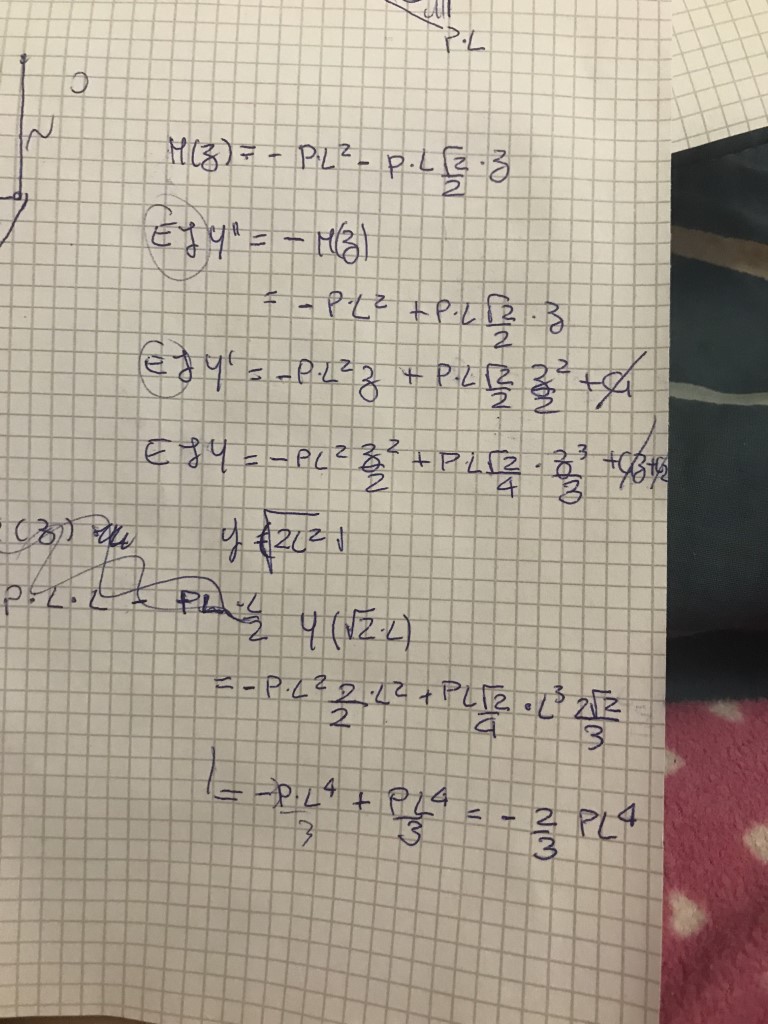 P·L
M(z) = - P·L² - P·L √2/2 · z
EJ y'' = - M(z)
= - P·L² + P·L √2/2 · z
EJ y' = - P·L² z + P·L √2/2 z²/2 + C1
EJ y = - PL² z²/2 + PL √2/4 · z³/3 + C1z+C2
(z)
y √2L²
P·L·L - PL·L/2
y(√2·L)
= - P·L² 2/2 · L² + PL √2/4 · L³ 2√2/3
= - P·L⁴/3 + PL⁴/3 = - 2/3 PL⁴